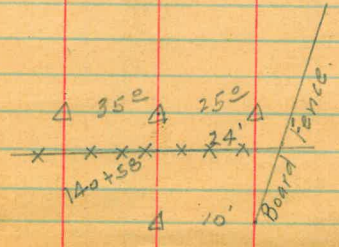 35° 25°
24'
140+58
10'
Board Fence.